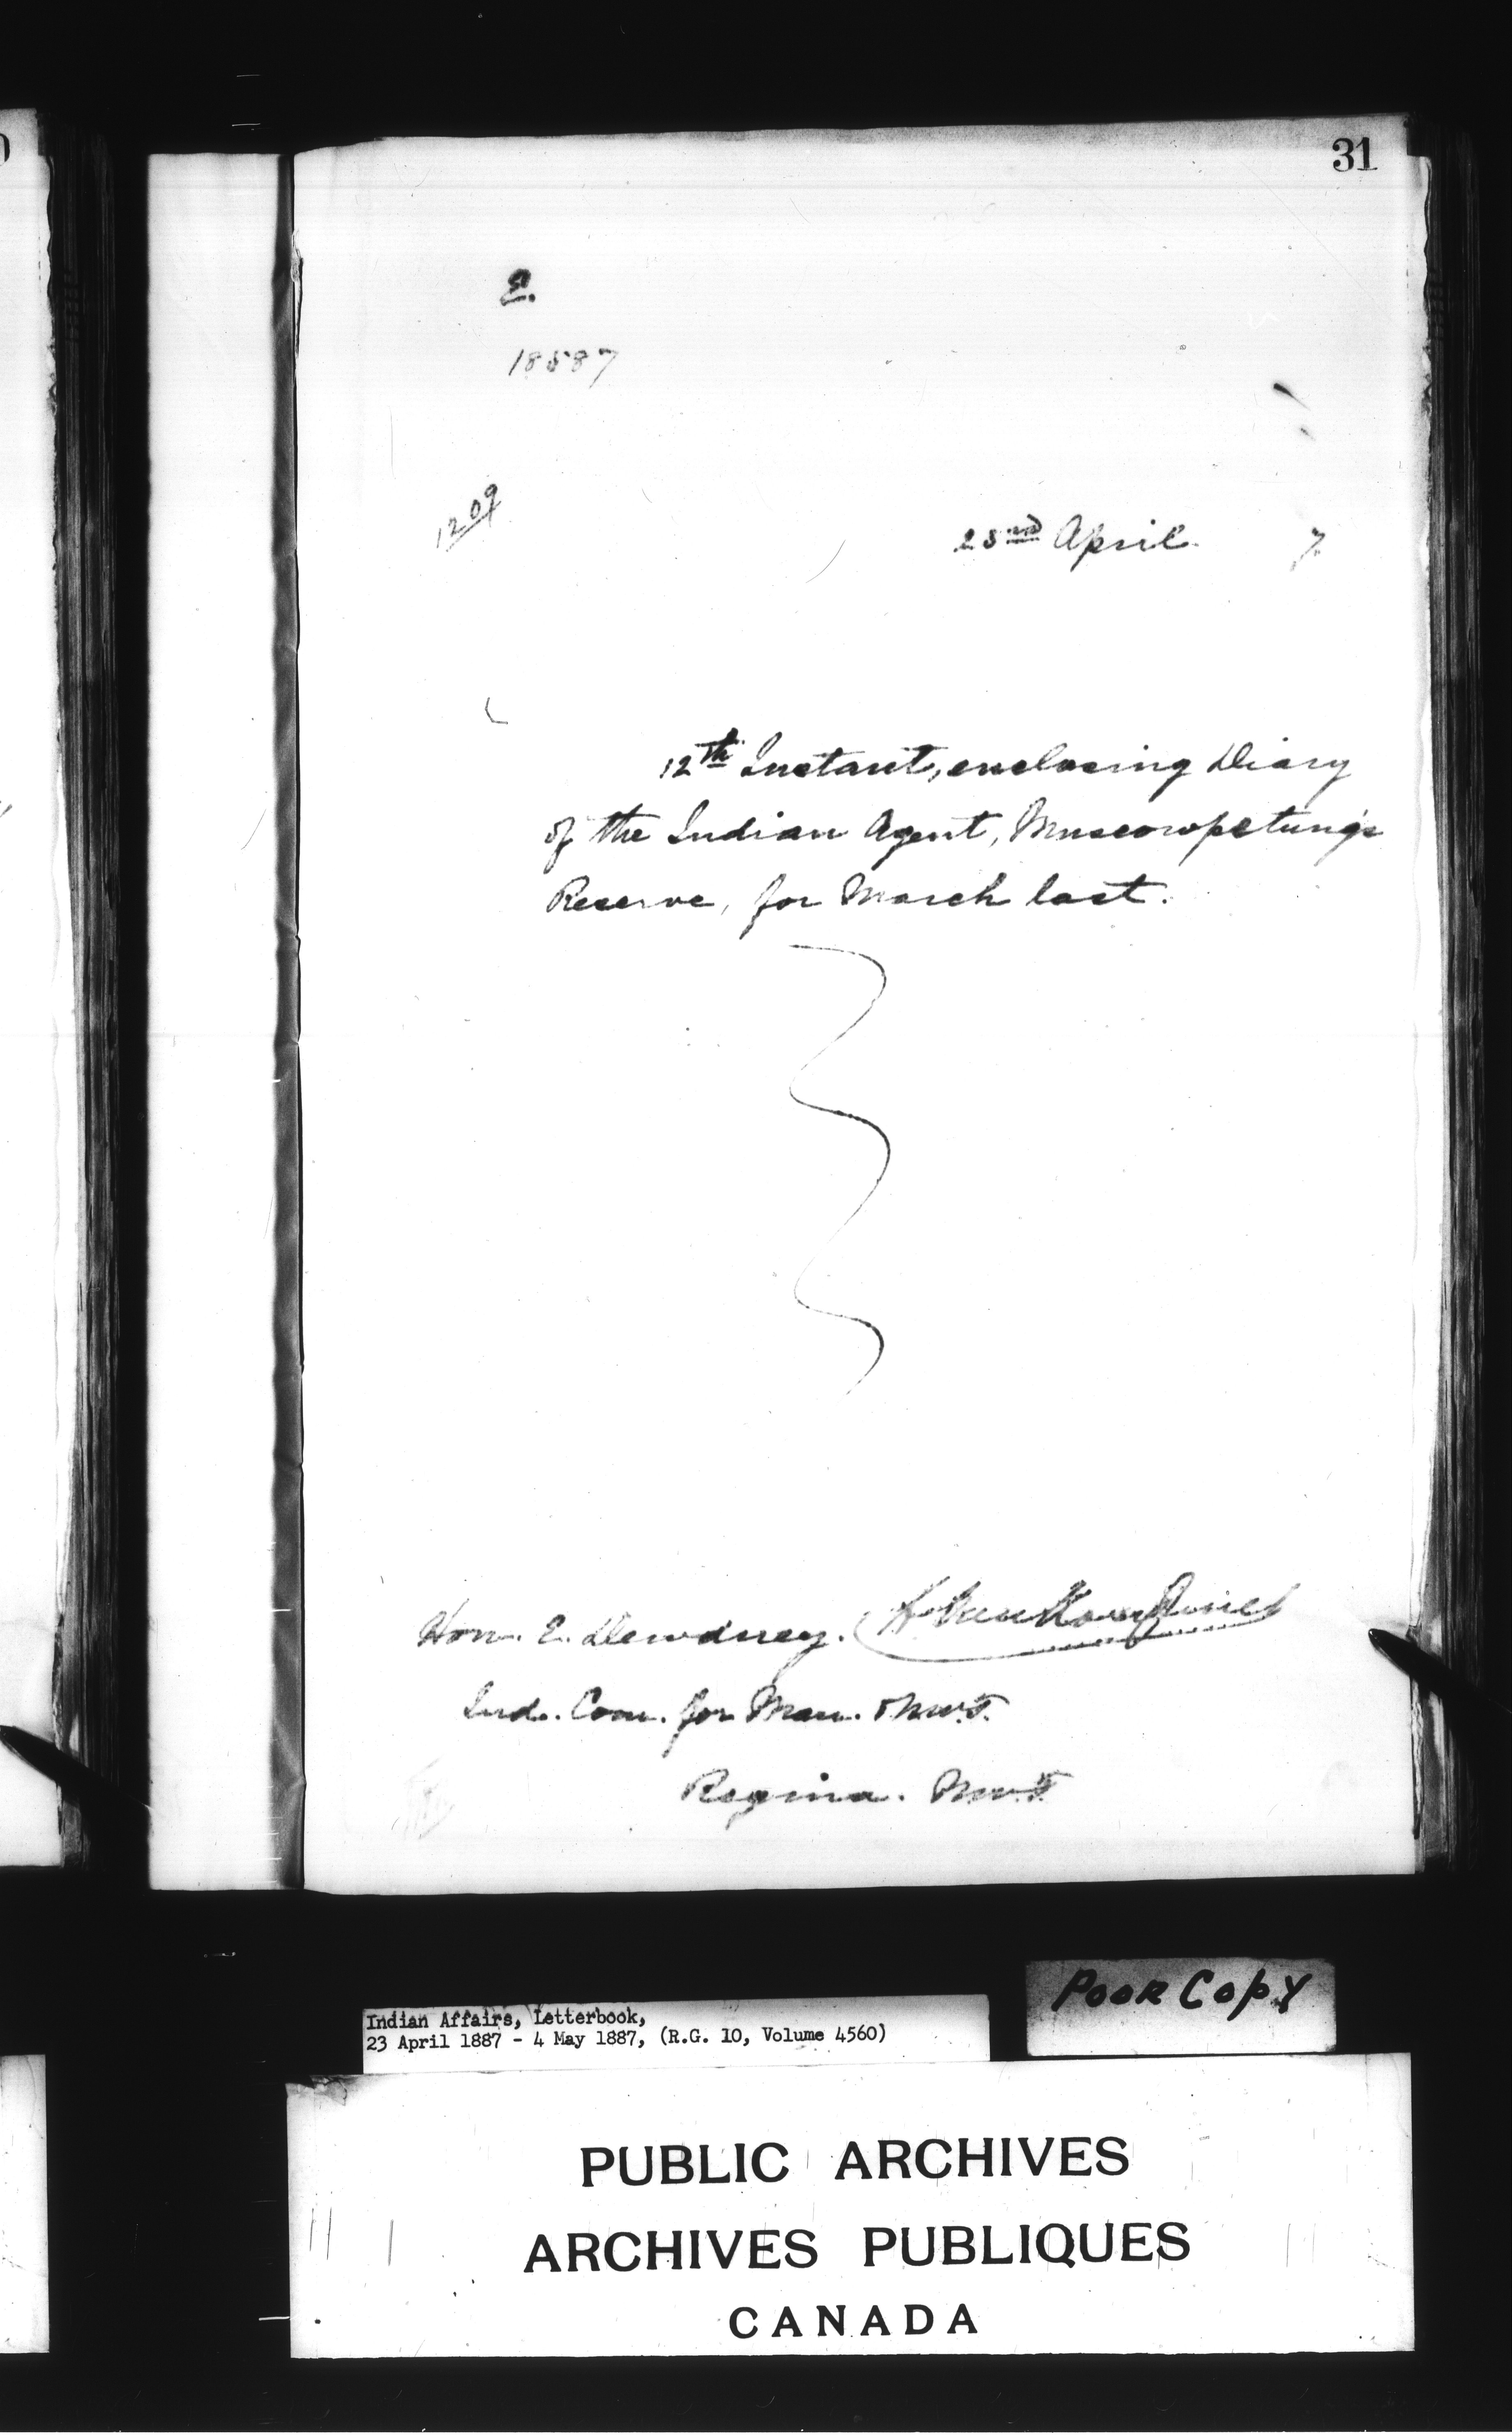 31
18587
1209
23rd April 7
12th Instant, enclosing Diary
of the Indian Agent, Muscowpetung's
Reserve, for March last.
Hon. E. Dewdney.
Ind. Com. for Man. & N.W.T.
Regina. N.W.T.
POOR COPY
Indian Affairs, Letterbook,
23 April 1887 - 4 May 1887, (R.G. 10, Volume 4560)
PUBLIC ARCHIVES
ARCHIVES PUBLIQUES
CANADA